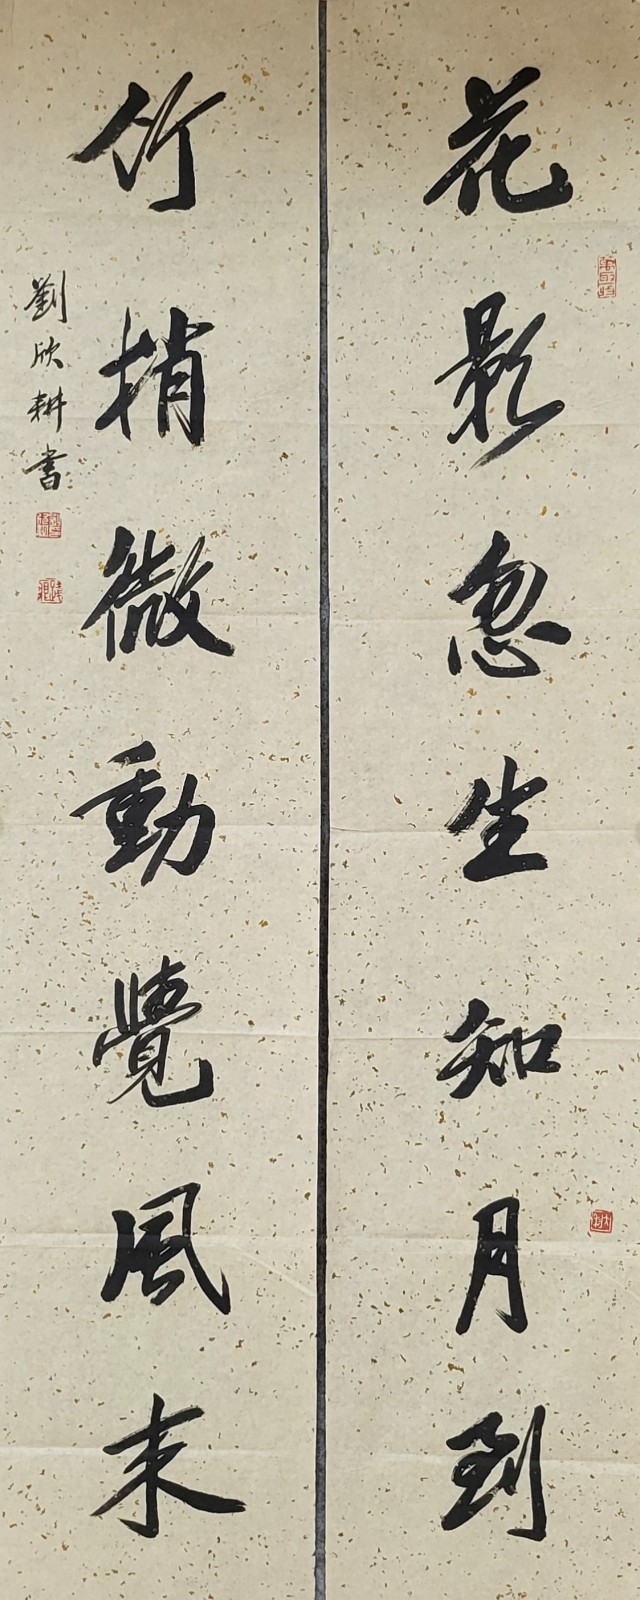 花影忽生知月到
竹梢微動覺風来
劉欣耕書